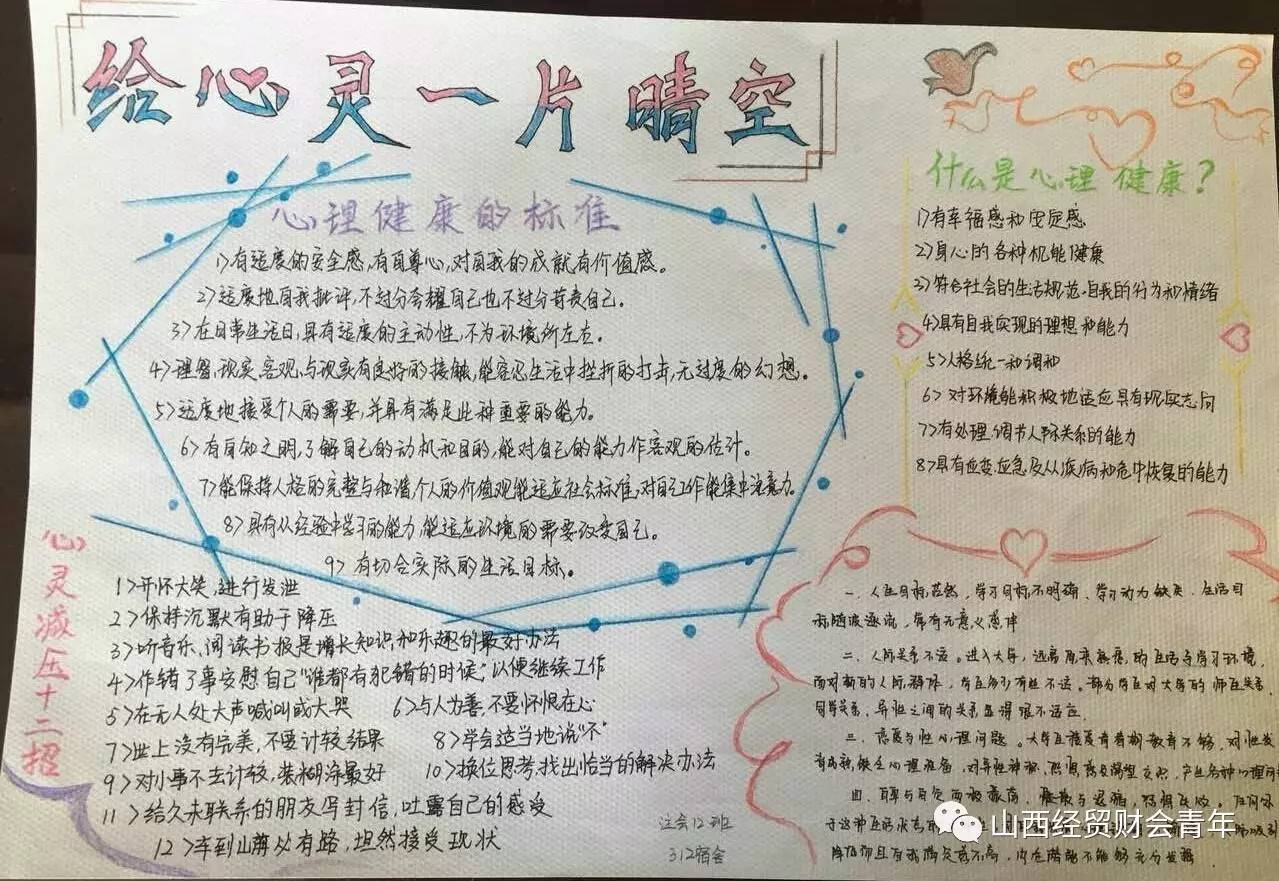 给心灵一片晴空
心理健康的标准
1>有适度的安全感,有自尊心,对自我的成就有价值感。
2>适度地自我批评,不过分夸耀自己也不过分苛责自己。
3>在日常生活日,具有适度的主动性,不为环境所左右。
4>理智、现实、客观,与现实有良好的接触,能容忍生活中挫折的打击,无过度的幻想。
5>适度地接受个人的需要,并具有满足此种重要的能力。
6>有自知之明,了解自己的动机和目的,能对自己的能力作客观的估计。
7>能保持人格的完整与和谐,个人的价值观能适应社会标准,对自己工作能集中注意力。
8>具有从经验中学习的能力,能适应环境的需要改变自己。
9>有切合实际的生活目标。
什么是心理健康?
1)有幸福感和安定感
2)身心的各种机能健康
3)符合社会的生活规范,自我的行为和情绪
4>具有自我实现的理想和能力
5>人格统一和调和
6>对环境能积极地适应具有现实志向
7>有处理、调节人际关系的能力
8>具有应变、应急及从疾病和危中恢复的能力
心灵减压十二招
1>开怀大笑,进行发泄
2>保持沉默有助于降压
3>听音乐、阅读书报是增长知识和乐趣的最好办法
4>作错了事安慰自己“谁都有犯错的时候”,以便继续工作
5>在无人处大声喊叫或大哭 6>与人为善,不要怀恨在心
7>世上没有完美,不要计较结果 8>学会适当地说“不”
9>对小事不去计较,装糊涂最好 10>换位思考,找出恰当的解决办法
11>给久未联系的朋友写封信,吐露自己的感受
12>车到山前必有路,坦然接受现状
注会12班
312宿舍
一、人生目标茫然,学习目标不明确,学习动力缺乏,生活目
标随波逐流,常有无意义感
二、人际关系不适。进入大学,远离原来熟悉的生活与学习环境,
面对新的人际群体,学生多少有些不适。部分学生对大学的师生关系、
同学关系、异性之间的关系显得很不适应
三、恋爱与性心理问题。大学生性教育不够,对性
心理准备,对异性神秘
四、
于这种生活状态
山西经贸财会青年